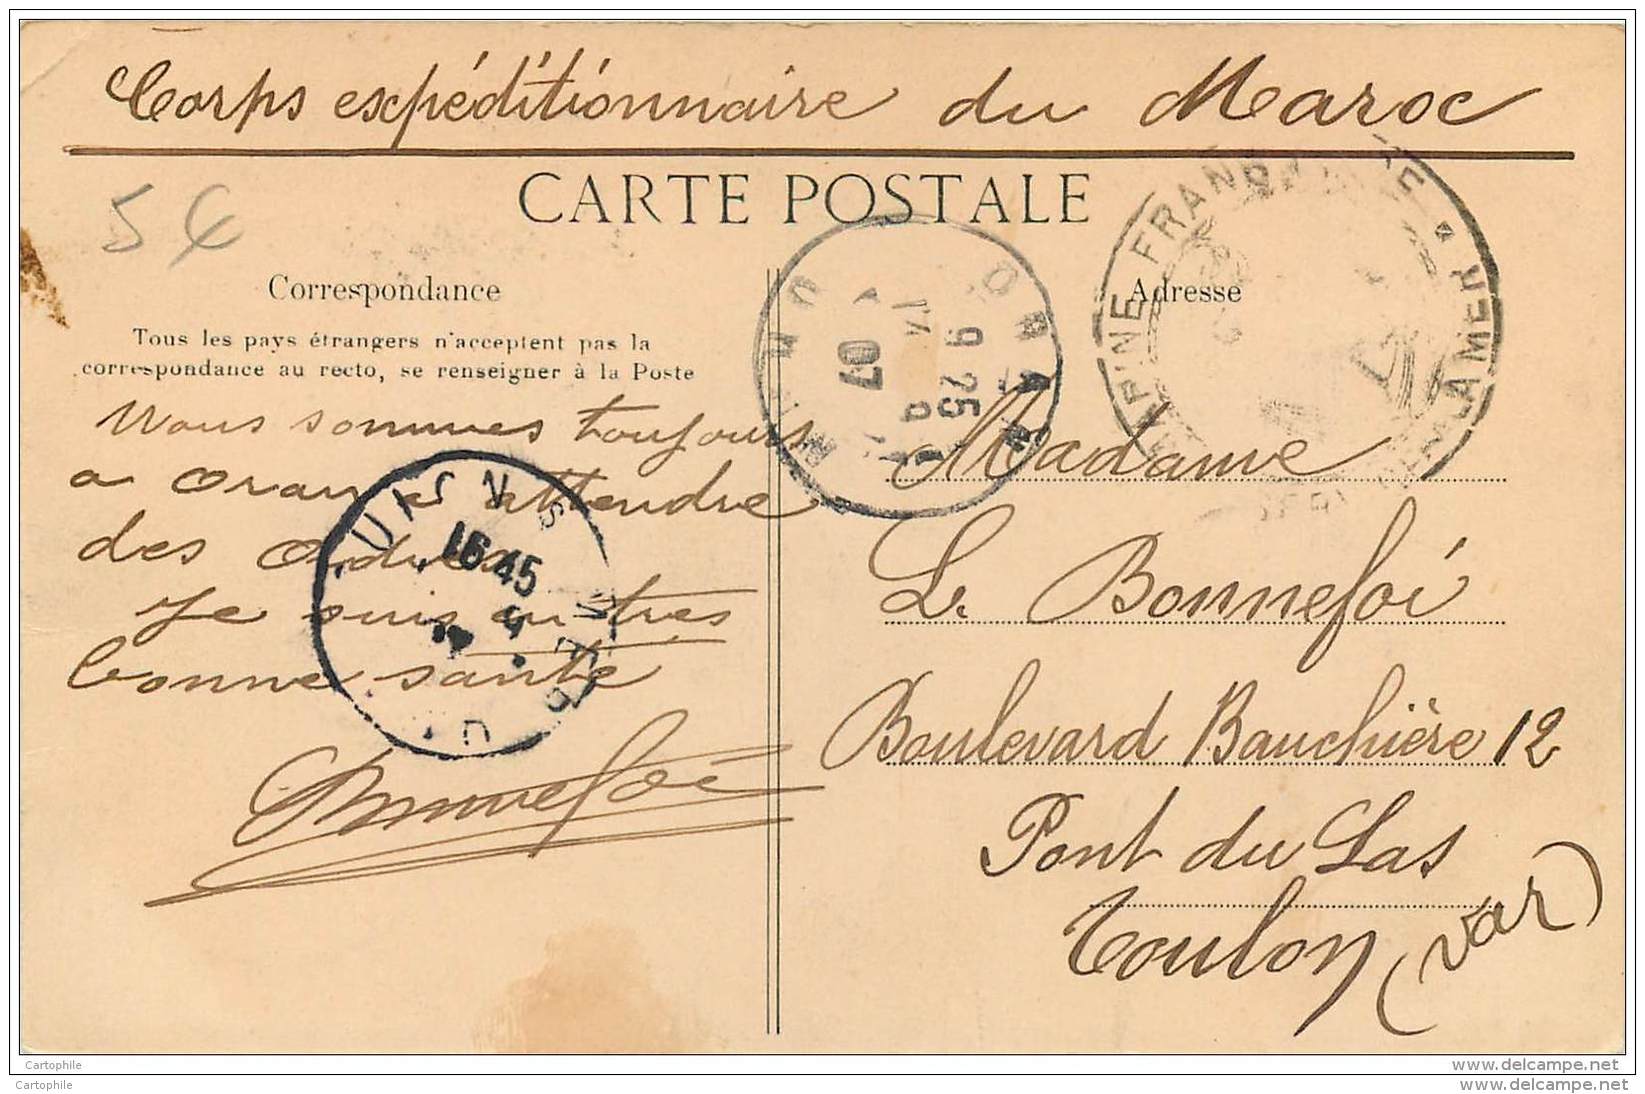 Corps expéditionnaire du Maroc
CARTE POSTALE
5 €
Correspondance
Adresse
Tous les pays étrangers n'acceptent pas la
correspondance au recto, se renseigner à la Poste
Nous sommes toujours
a Oran a attendre
des ordres
Je suis en très
bonne santé
Bonnefoé
Madame
L. Bonnefoi
Boulevard Bauchière 12
Pont du Las
Toulon (Var)
ORAN
9 25
07
16 45
Cartophile
www.delcampe.net
Cartophile
www.delcampe.net